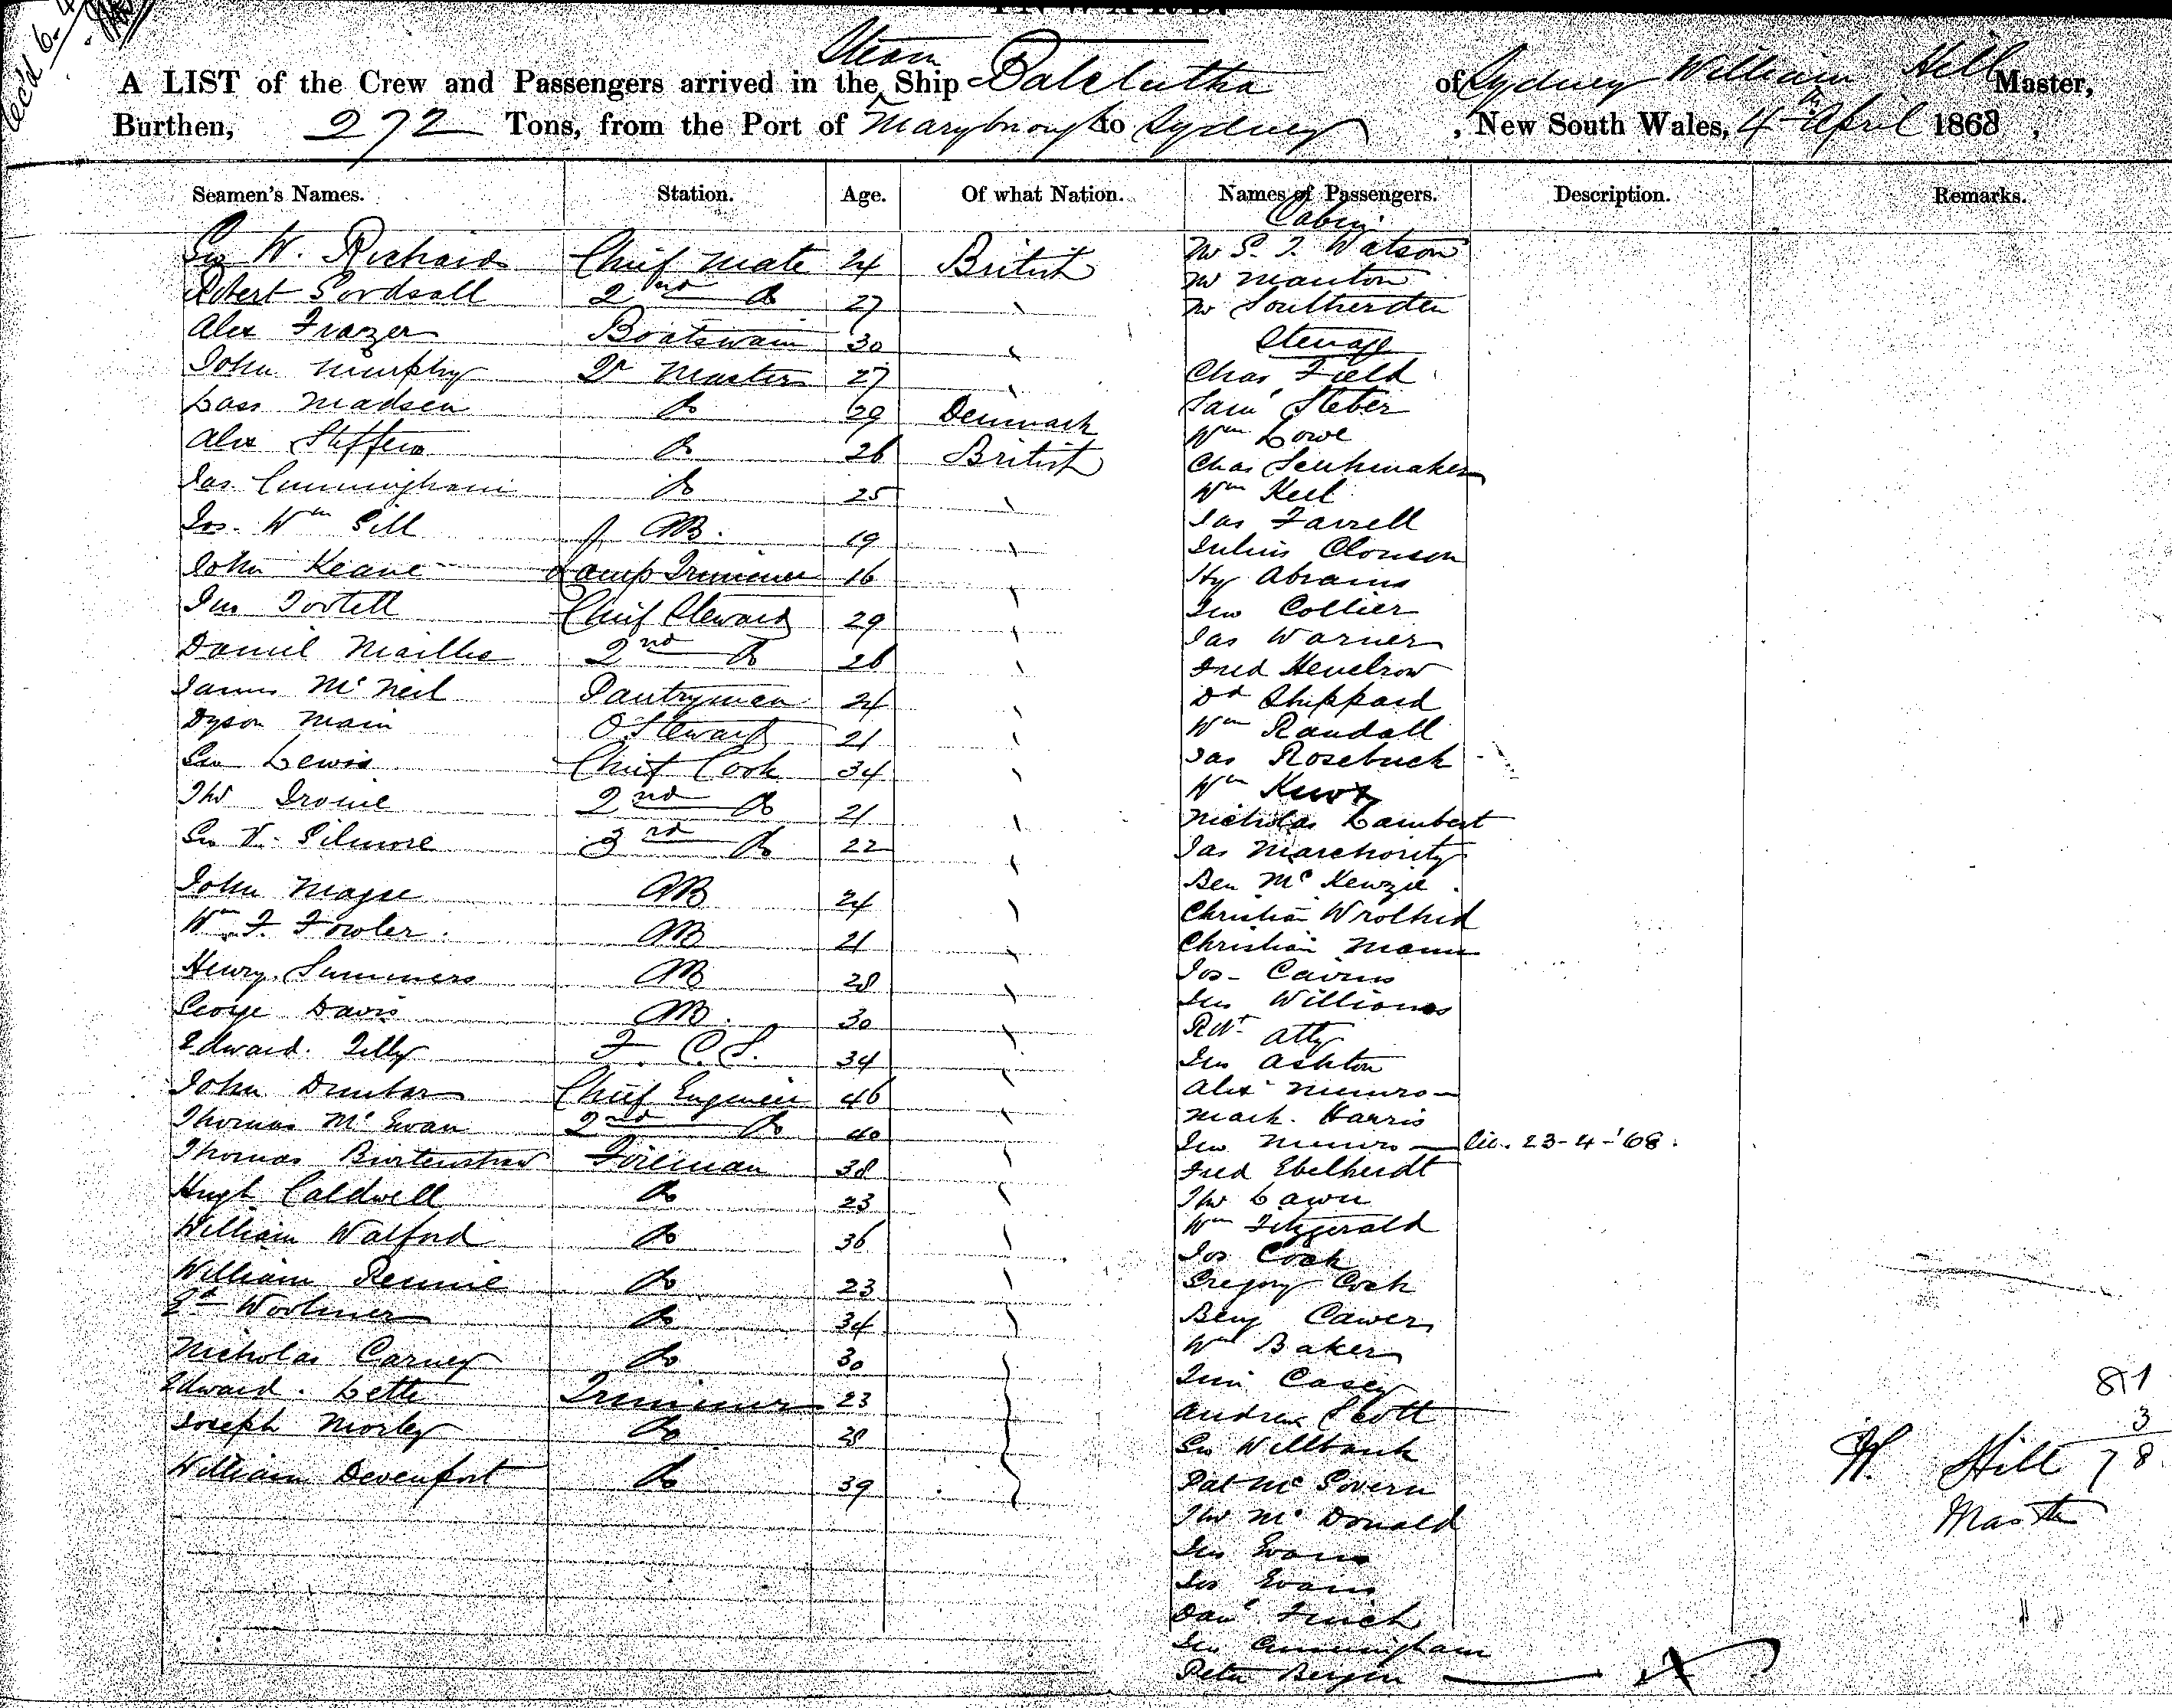 INWARD.
Rec'd 6.4
A LIST of the Crew and Passengers arrived in the Steam Ship Balclutha of Sydney William Hill Master,
Burthen, 272 Tons, from the Port of Maryborough to Sydney, New South Wales, 4th April 1868,
Seamen's Names. Station. Age. Of what Nation. Names of Passengers. Description. Remarks.
Cabin
Geo W. Richards Chief Mate 24 British Mr S. T. Watson
Mr Manton
Robert Goodsall 2nd Do 27 " Mr Southerden
Alex Frazer Boatswain 30 " Steerage
John Murphy Qr Master 27 " Chas Field
Lass Madsen Do 29 Denmark Saml Steber
Alex Steffens Do 26 British Wm Lowe
Chas
Jas. Cunningham Do 25 " Wm Keel
Jos. Wm Gill AB. 19 " Jas Farrell
Julius Clonson
John Keane Lamp Trimmer 16 " Hy Abrams
Jno Tootell Chief Steward 29 " Jno Collier
Jas Warner
Daniel Maillis 2nd Do 26 " Fred
James McNeil Pantryman 24 " Dd Shippard
Dyson Main O. Steward 21 " Wm Randall
Geo Lewis Chief Cook 34 " Jas Rosebuck
Wm
Thos Irvine 2nd Do 21 " Nicholas Lambert
Geo W. Gilmore 3rd Do 22 " Jas
Ben McKenzie
John Magee AB 24 " Christian
Wm F. Fowler AB 21 " Christian Mann
Henry Summers AB 28 " Jos- Cairns
Jno Williams
George Davis AB. 30 " Robt Atty
Edward Tilly F. C. S. 34 " Jno Ashton
John Dunbar Chief Engineer 46 " Alex Munro
Thomas McEwan 2nd Do 40 " Mark Harris
Jno Munro lic. 23-4-'68.
Thomas Birtenshaw Fireman 38 " Fred Ebelherdt
Hugh Caldwell Do 23 " Thos Lawn
Wm Fitzgerald
William Walford Do 36 " Jos Cock
William Rennie Do 23 " Gregory Cock
Ed Woolmer Do 34 " Benj Cawers
Wm Baker
Nicholas Carney Do 30 " Tim Casey
Edward Lette Trimmer 23 " Andrew Scott
Joseph Morley Do 28 " Geo Wellbank
William Devenport Do 39 " Pat McGovern
Thos McDonald
Jno Evans
Jos Evans
Danl Finch
Jno Cunningham
Peter Bergin
81
3
78
W. Hill
Master